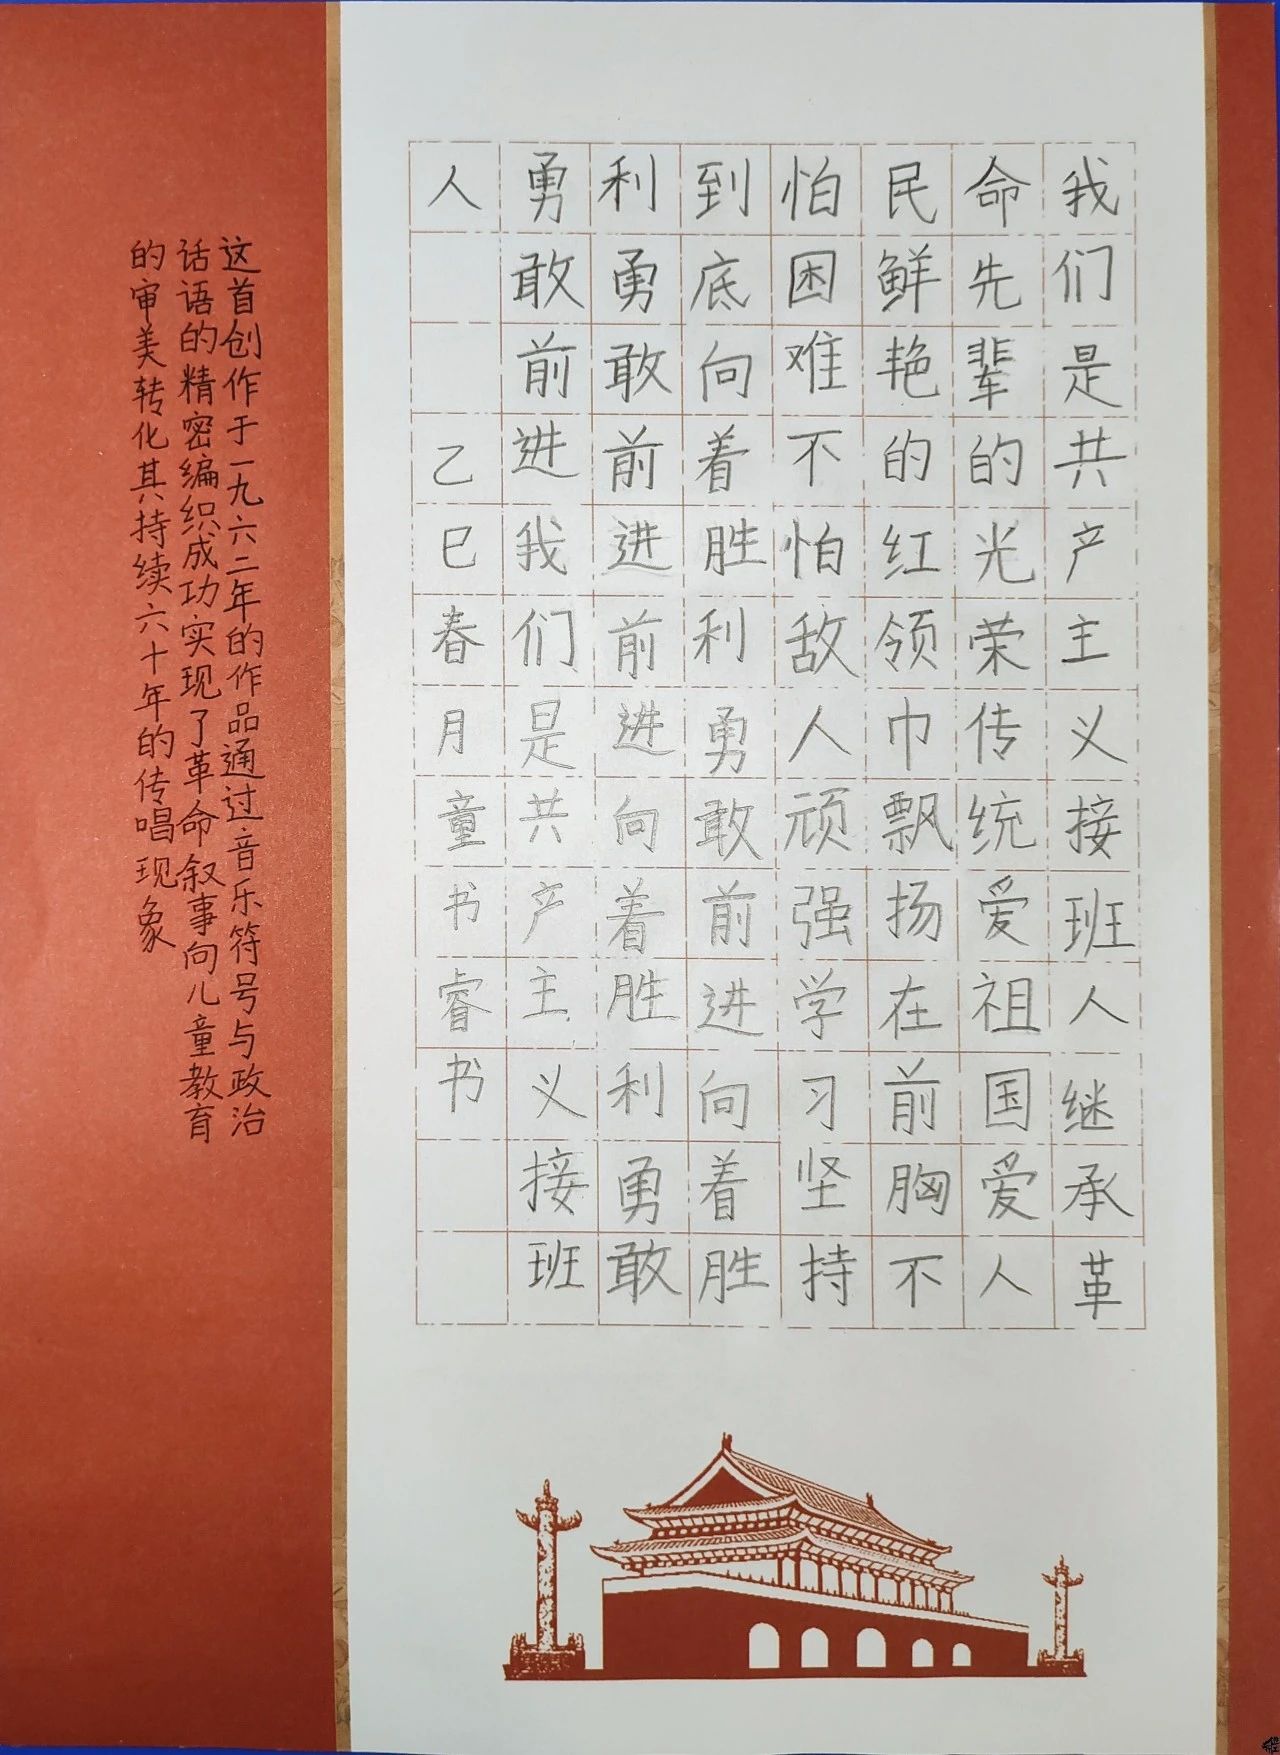 我们是共产主义接班人继承革
命先辈的光荣传统爱祖国爱人
民鲜艳的红领巾飘扬在前胸不
怕困难不怕敌人顽强学习坚持
到底向着胜利勇敢前进向着胜
利勇敢前进前进向着胜利勇敢
勇敢前进我们是共产主义接班
人 乙巳春月童书睿书
这首创作于一九六二年的作品通过音乐符号与政治
话语的精密编织成功实现了革命叙事向儿童教育
的审美转化其持续六十年的传唱现象